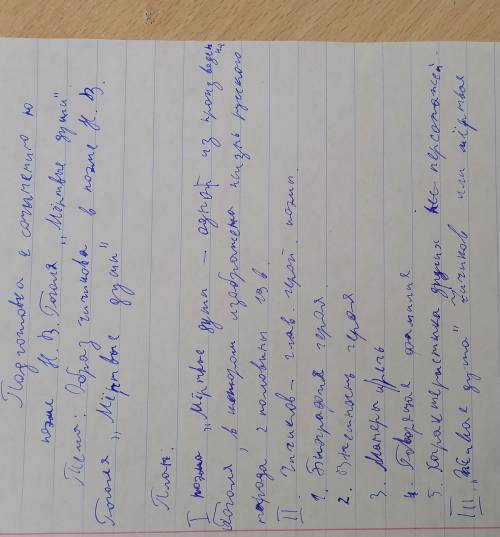 Подготовка к сочинению по
поэме Н. В. Гоголя „Мёртвые души"
Тема: Образ Чичикова в поэме Н. В.
Гоголя „Мёртвые души"
План.
I поэма „Мёртвые души – одной из произведения
Гоголя, в котором изображена жизнь русского
народа 1 половины 19 в.
II. Чичиков – глав. герой поэмы
1. Биография героя.
2. Внешность героя
3. Манеры, речь
4. Говорящая фамилия
5. Характеристика других персонажей.
III „Живая душа" Чичиков или мёртвая